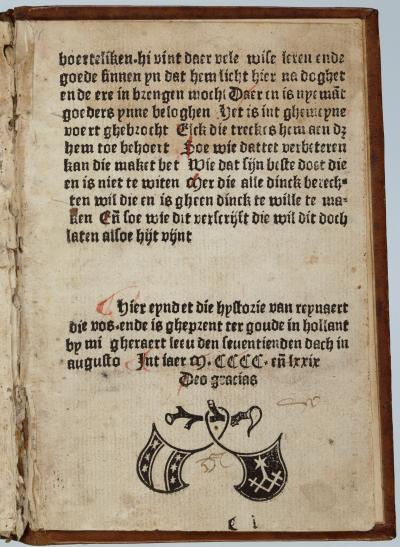 boerteliken. hi vint daer vele wise leren ende
goede sinnen yn dat hem licht hier na doghet
ende ere in brengen mocht Daer en is nyemāt
goeders ynne beloghen Het is int ghemeyne
voert ghebrocht Elck die treckes hem aen dz
hem toe behoert Soe wie dattet verbeteren
kan die maket bet Wie dat sijn beste doet die
en is niet te witen Mer die alle dinck berech-
ten wil die en is gheen dinck te wille te ma-
ken Eñ soe wie dit verscrijft die wil dit doch
laten alsoe hijt vijnt
Hier eyndet die hystorie van reynaert
die vos. ende is gheprent ter goude in hollant
by mi gheraert leeu den seuentienden dach in
augusto Int iaer M. CCCC. eñ lxxix
Deo gracias